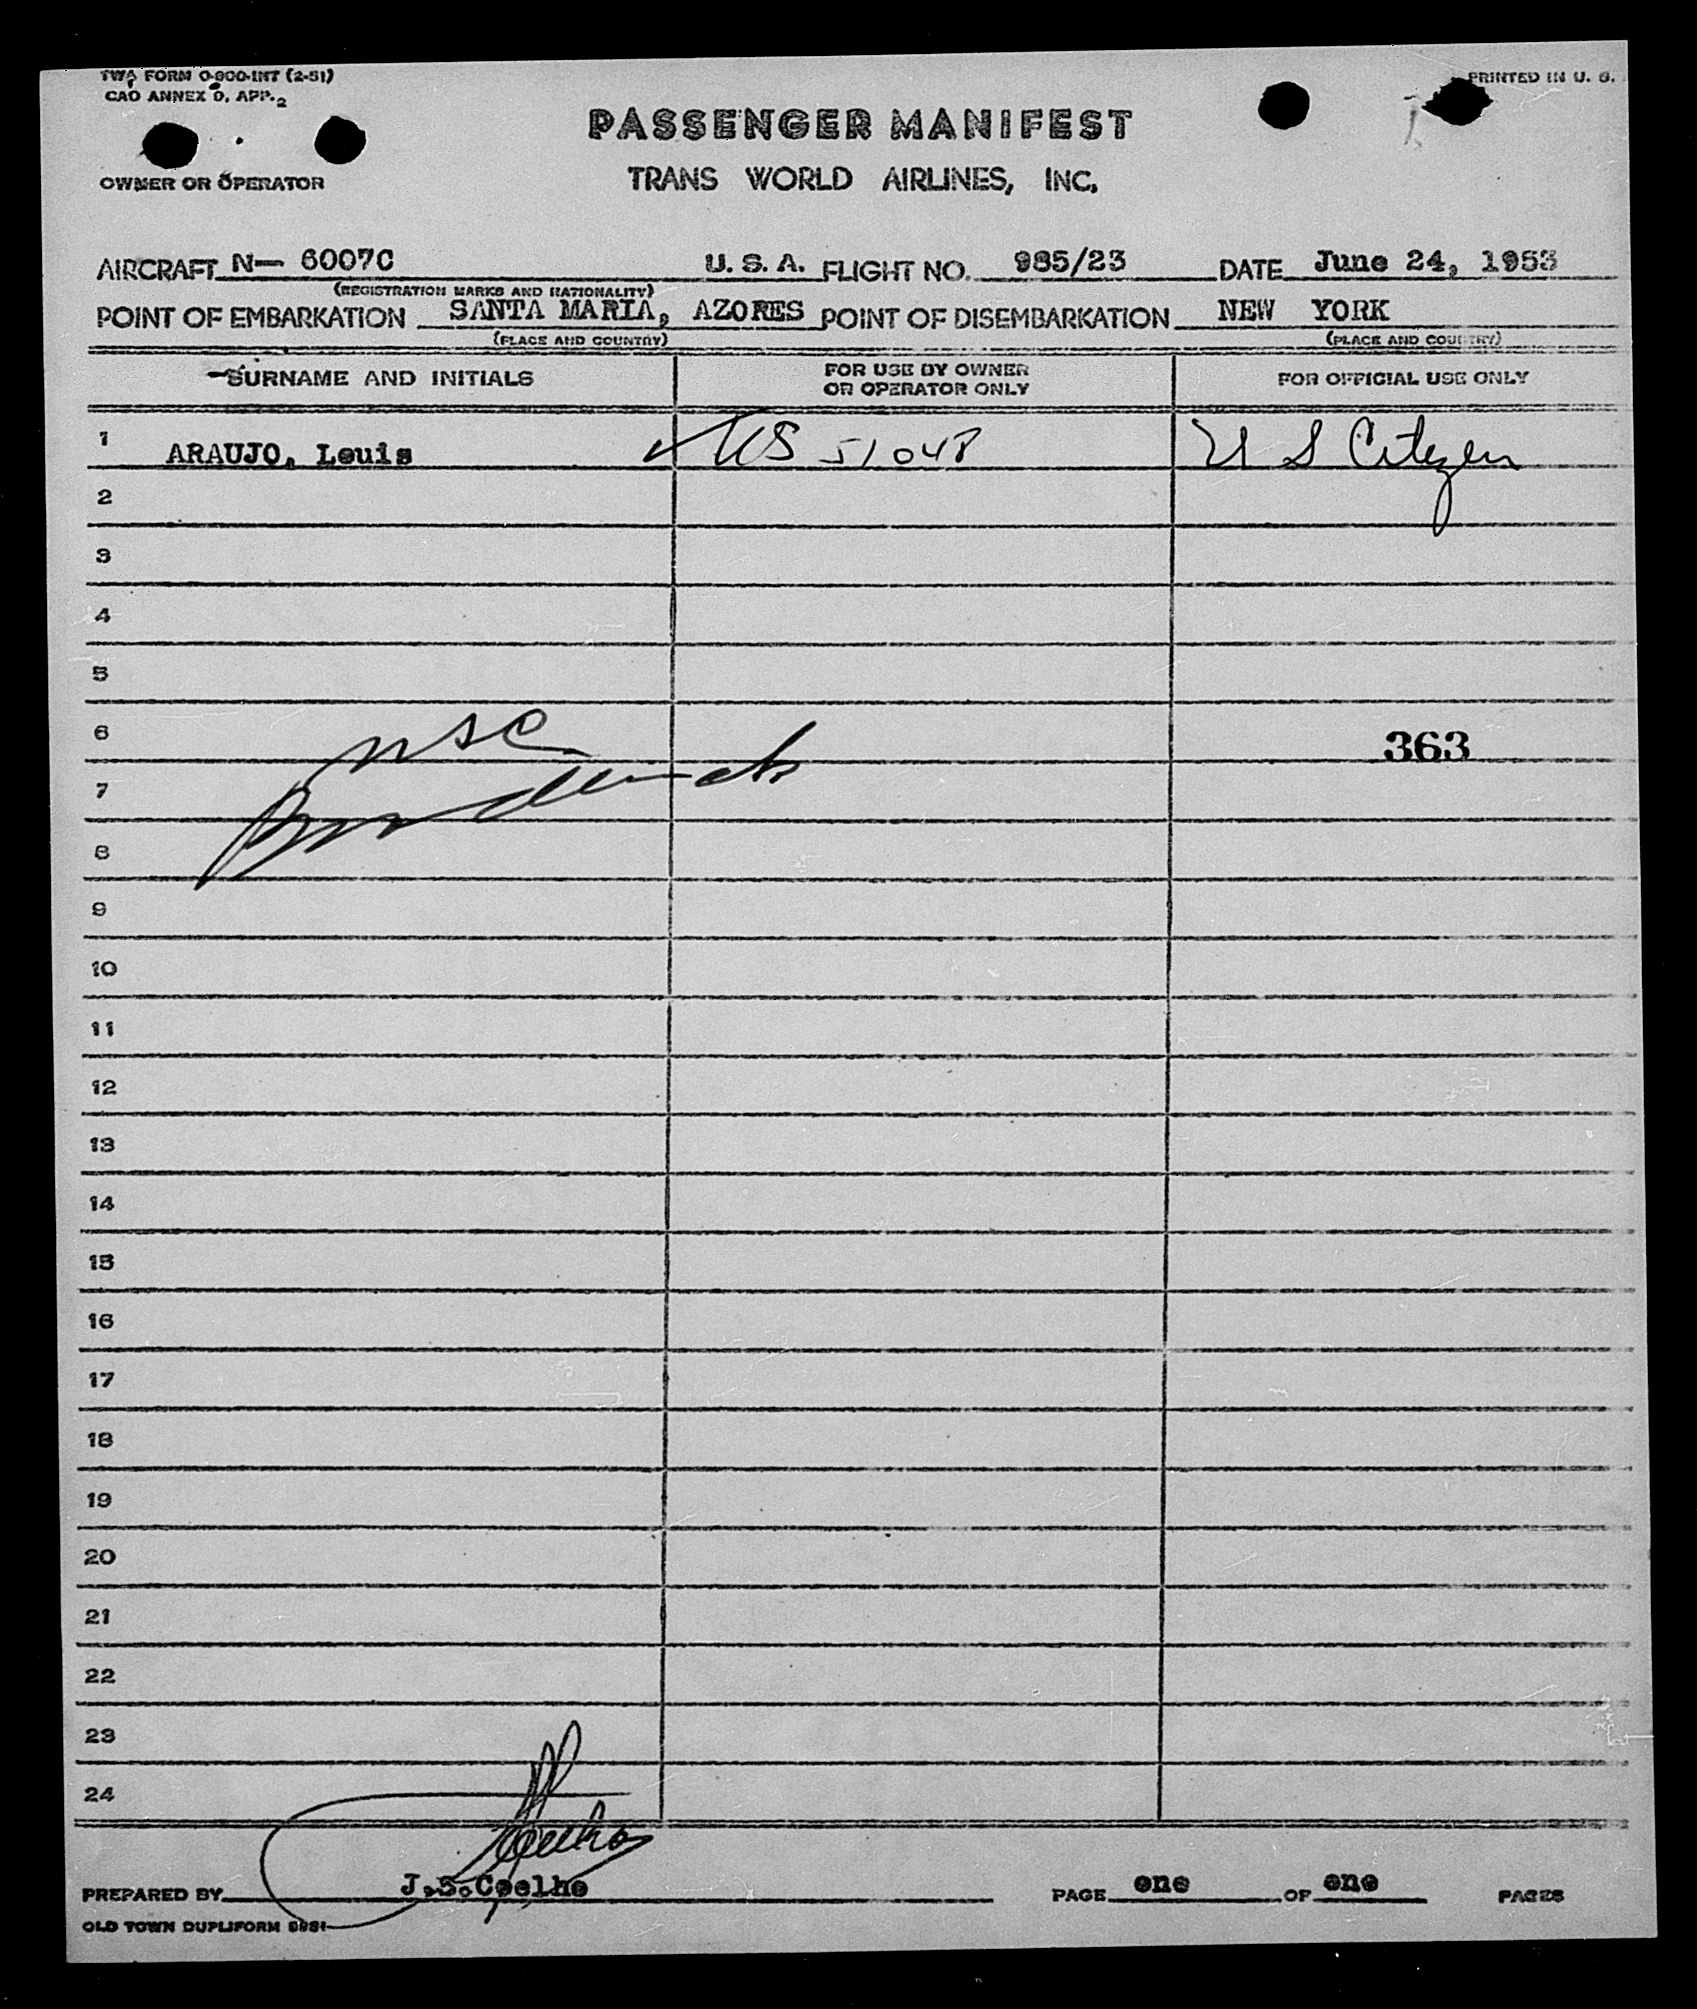 TWA FORM O-900-INT (2-51)
CAO ANNEX 9, APP. 2
PRINTED IN U. S.
PASSENGER MANIFEST
OWNER OR OPERATOR
TRANS WORLD AIRLINES, INC.
AIRCRAFT N— 6007C U. S. A. FLIGHT NO. 985/23 DATE June 24, 1953
(REGISTRATION MARKS AND NATIONALITY)
POINT OF EMBARKATION SANTA MARIA, AZORES POINT OF DISEMBARKATION NEW YORK
(PLACE AND COUNTRY) (PLACE AND COUNTRY)
SURNAME AND INITIALS FOR USE BY OWNER OR OPERATOR ONLY FOR OFFICIAL USE ONLY
1 ARAUJO, Louis US 51048 U S Citizen
2
3
4
5
6 nsc 363
7
8
9
10
11
12
13
14
15
16
17
18
19
20
21
22
23
24
PREPARED BY J.S.Coelho PAGE one OF one PAGES
OLD TOWN DUPLIFORM